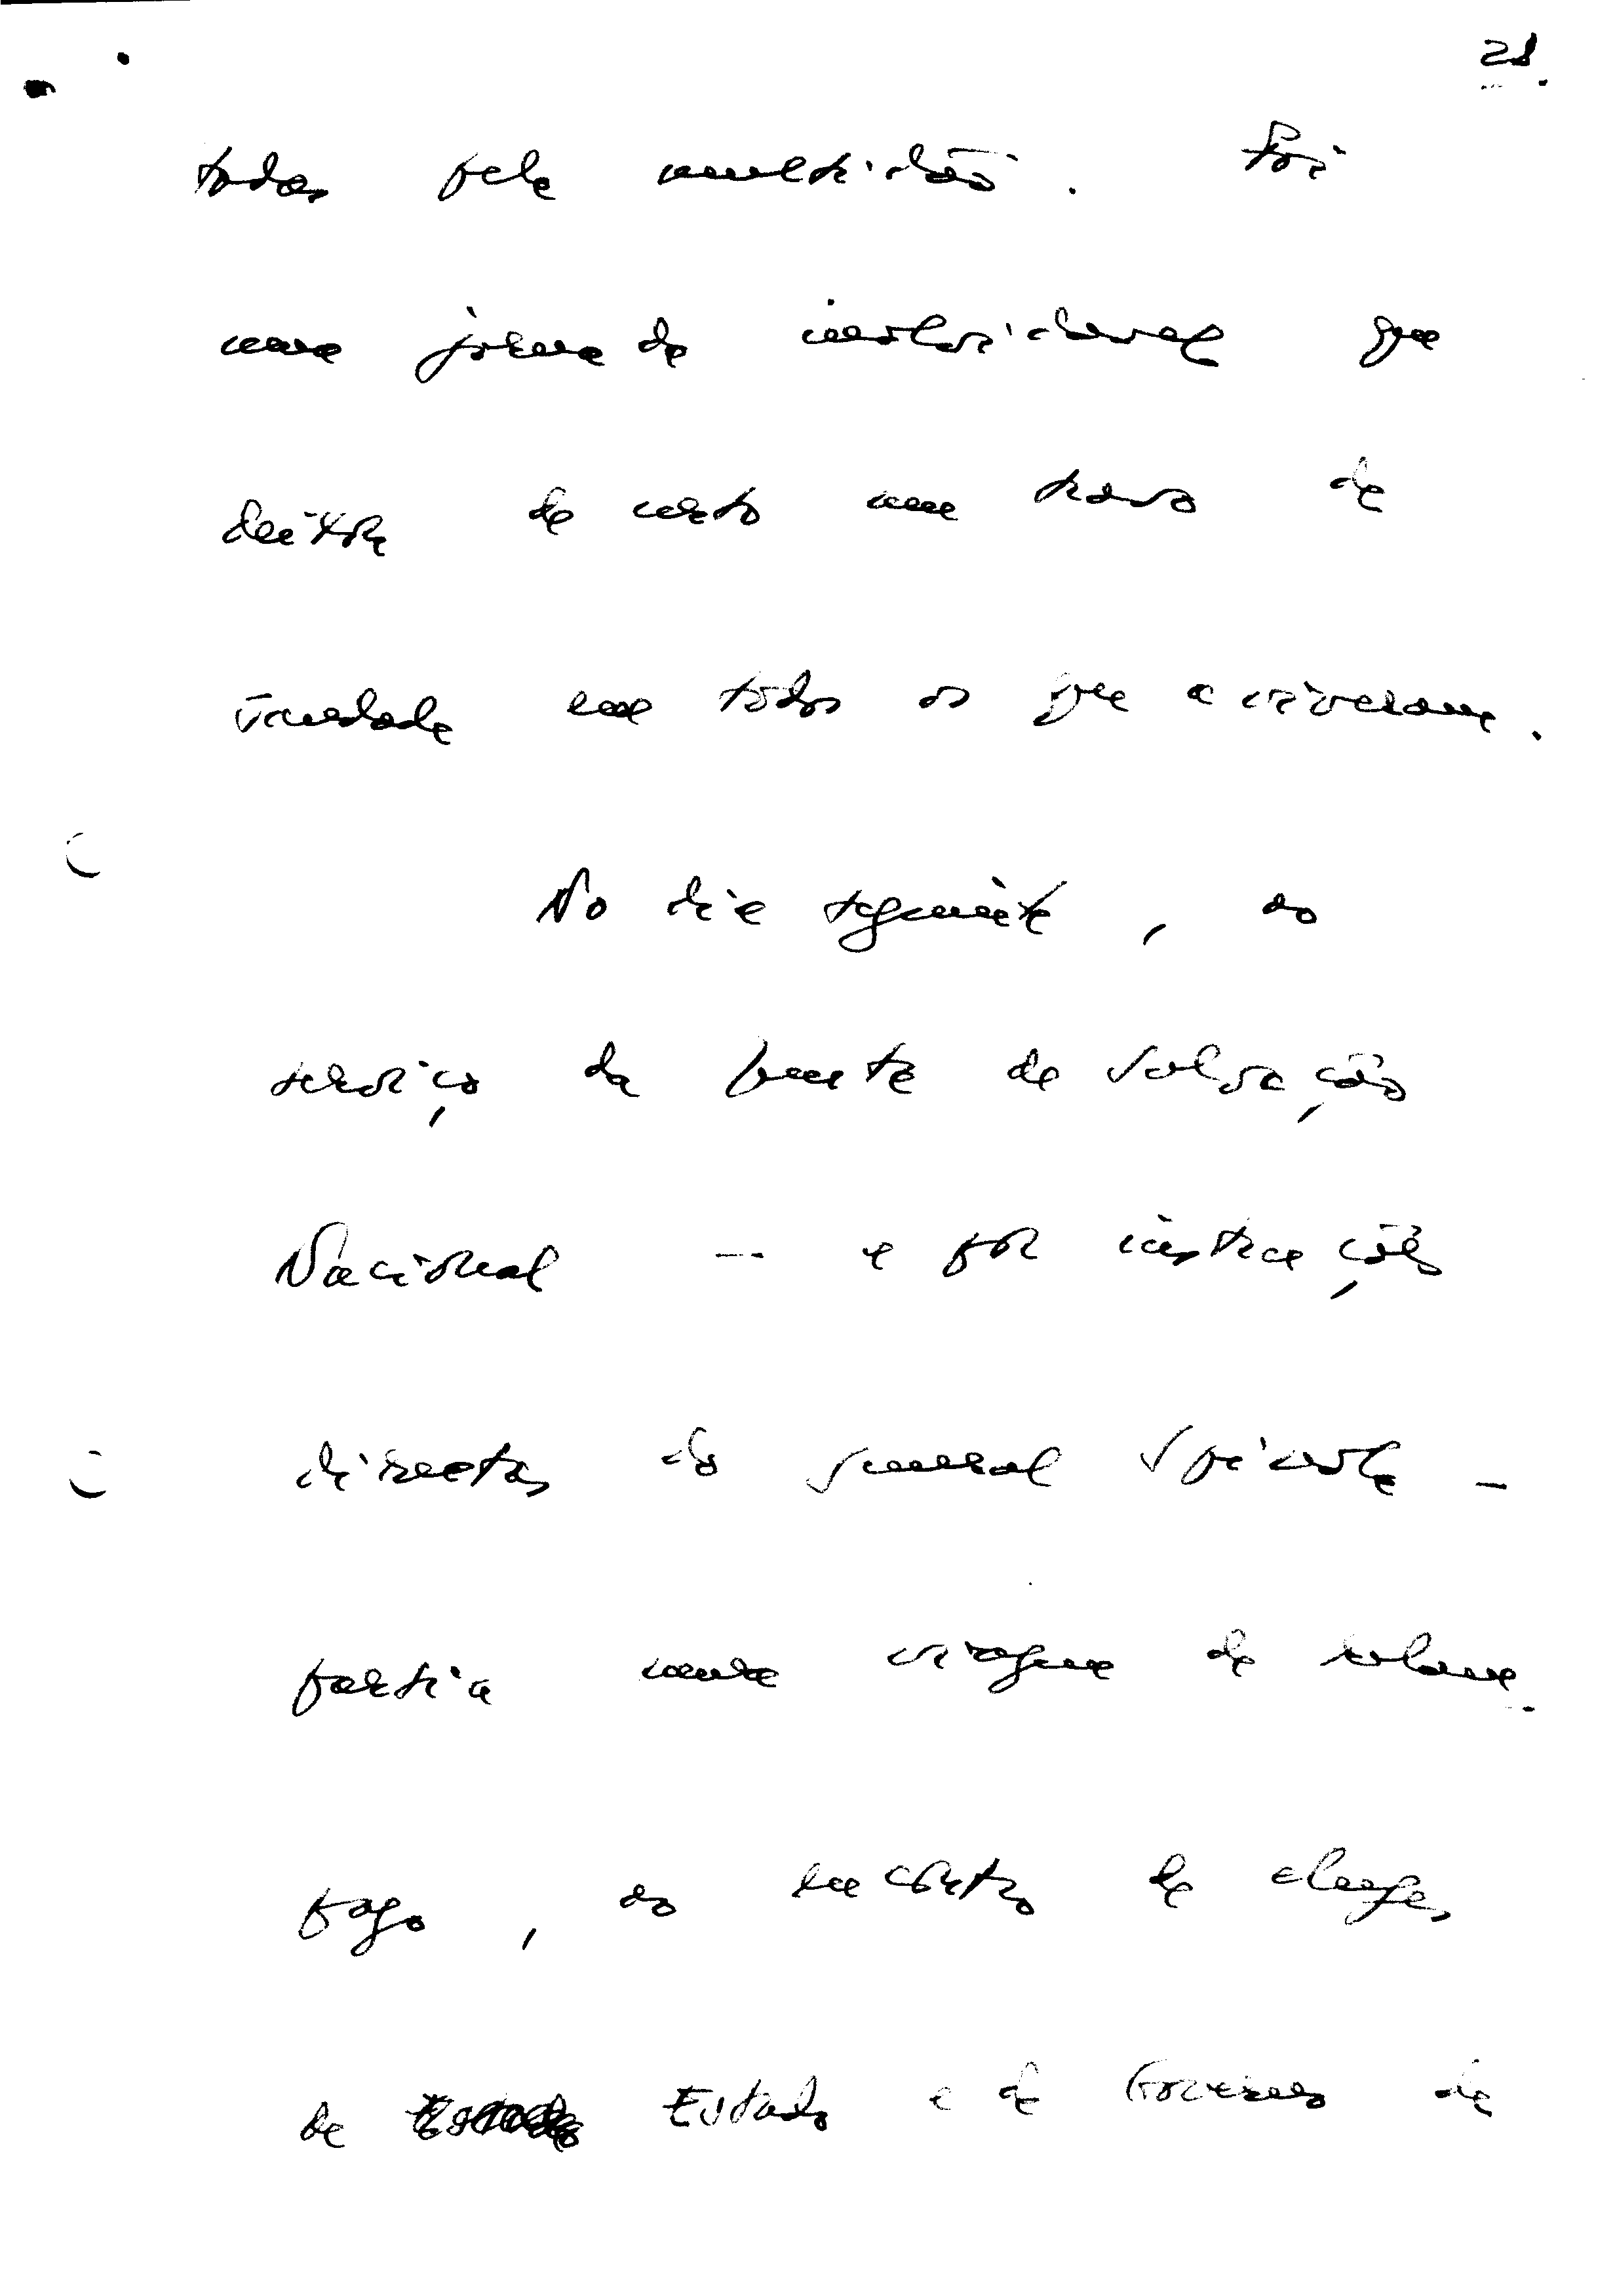 28.
todos pela multidão. Foi
uma jornada inolvidável que
deixou de certo um travo de
saudade em todos os que a viveram.
No dia seguinte, ao
serviço da Junta de Salvação
Nacional — e por instruções
directas do General Spínola —
partia numa viagem de relam-
pago, ao encontro de chefes
de Estado e de Governo da